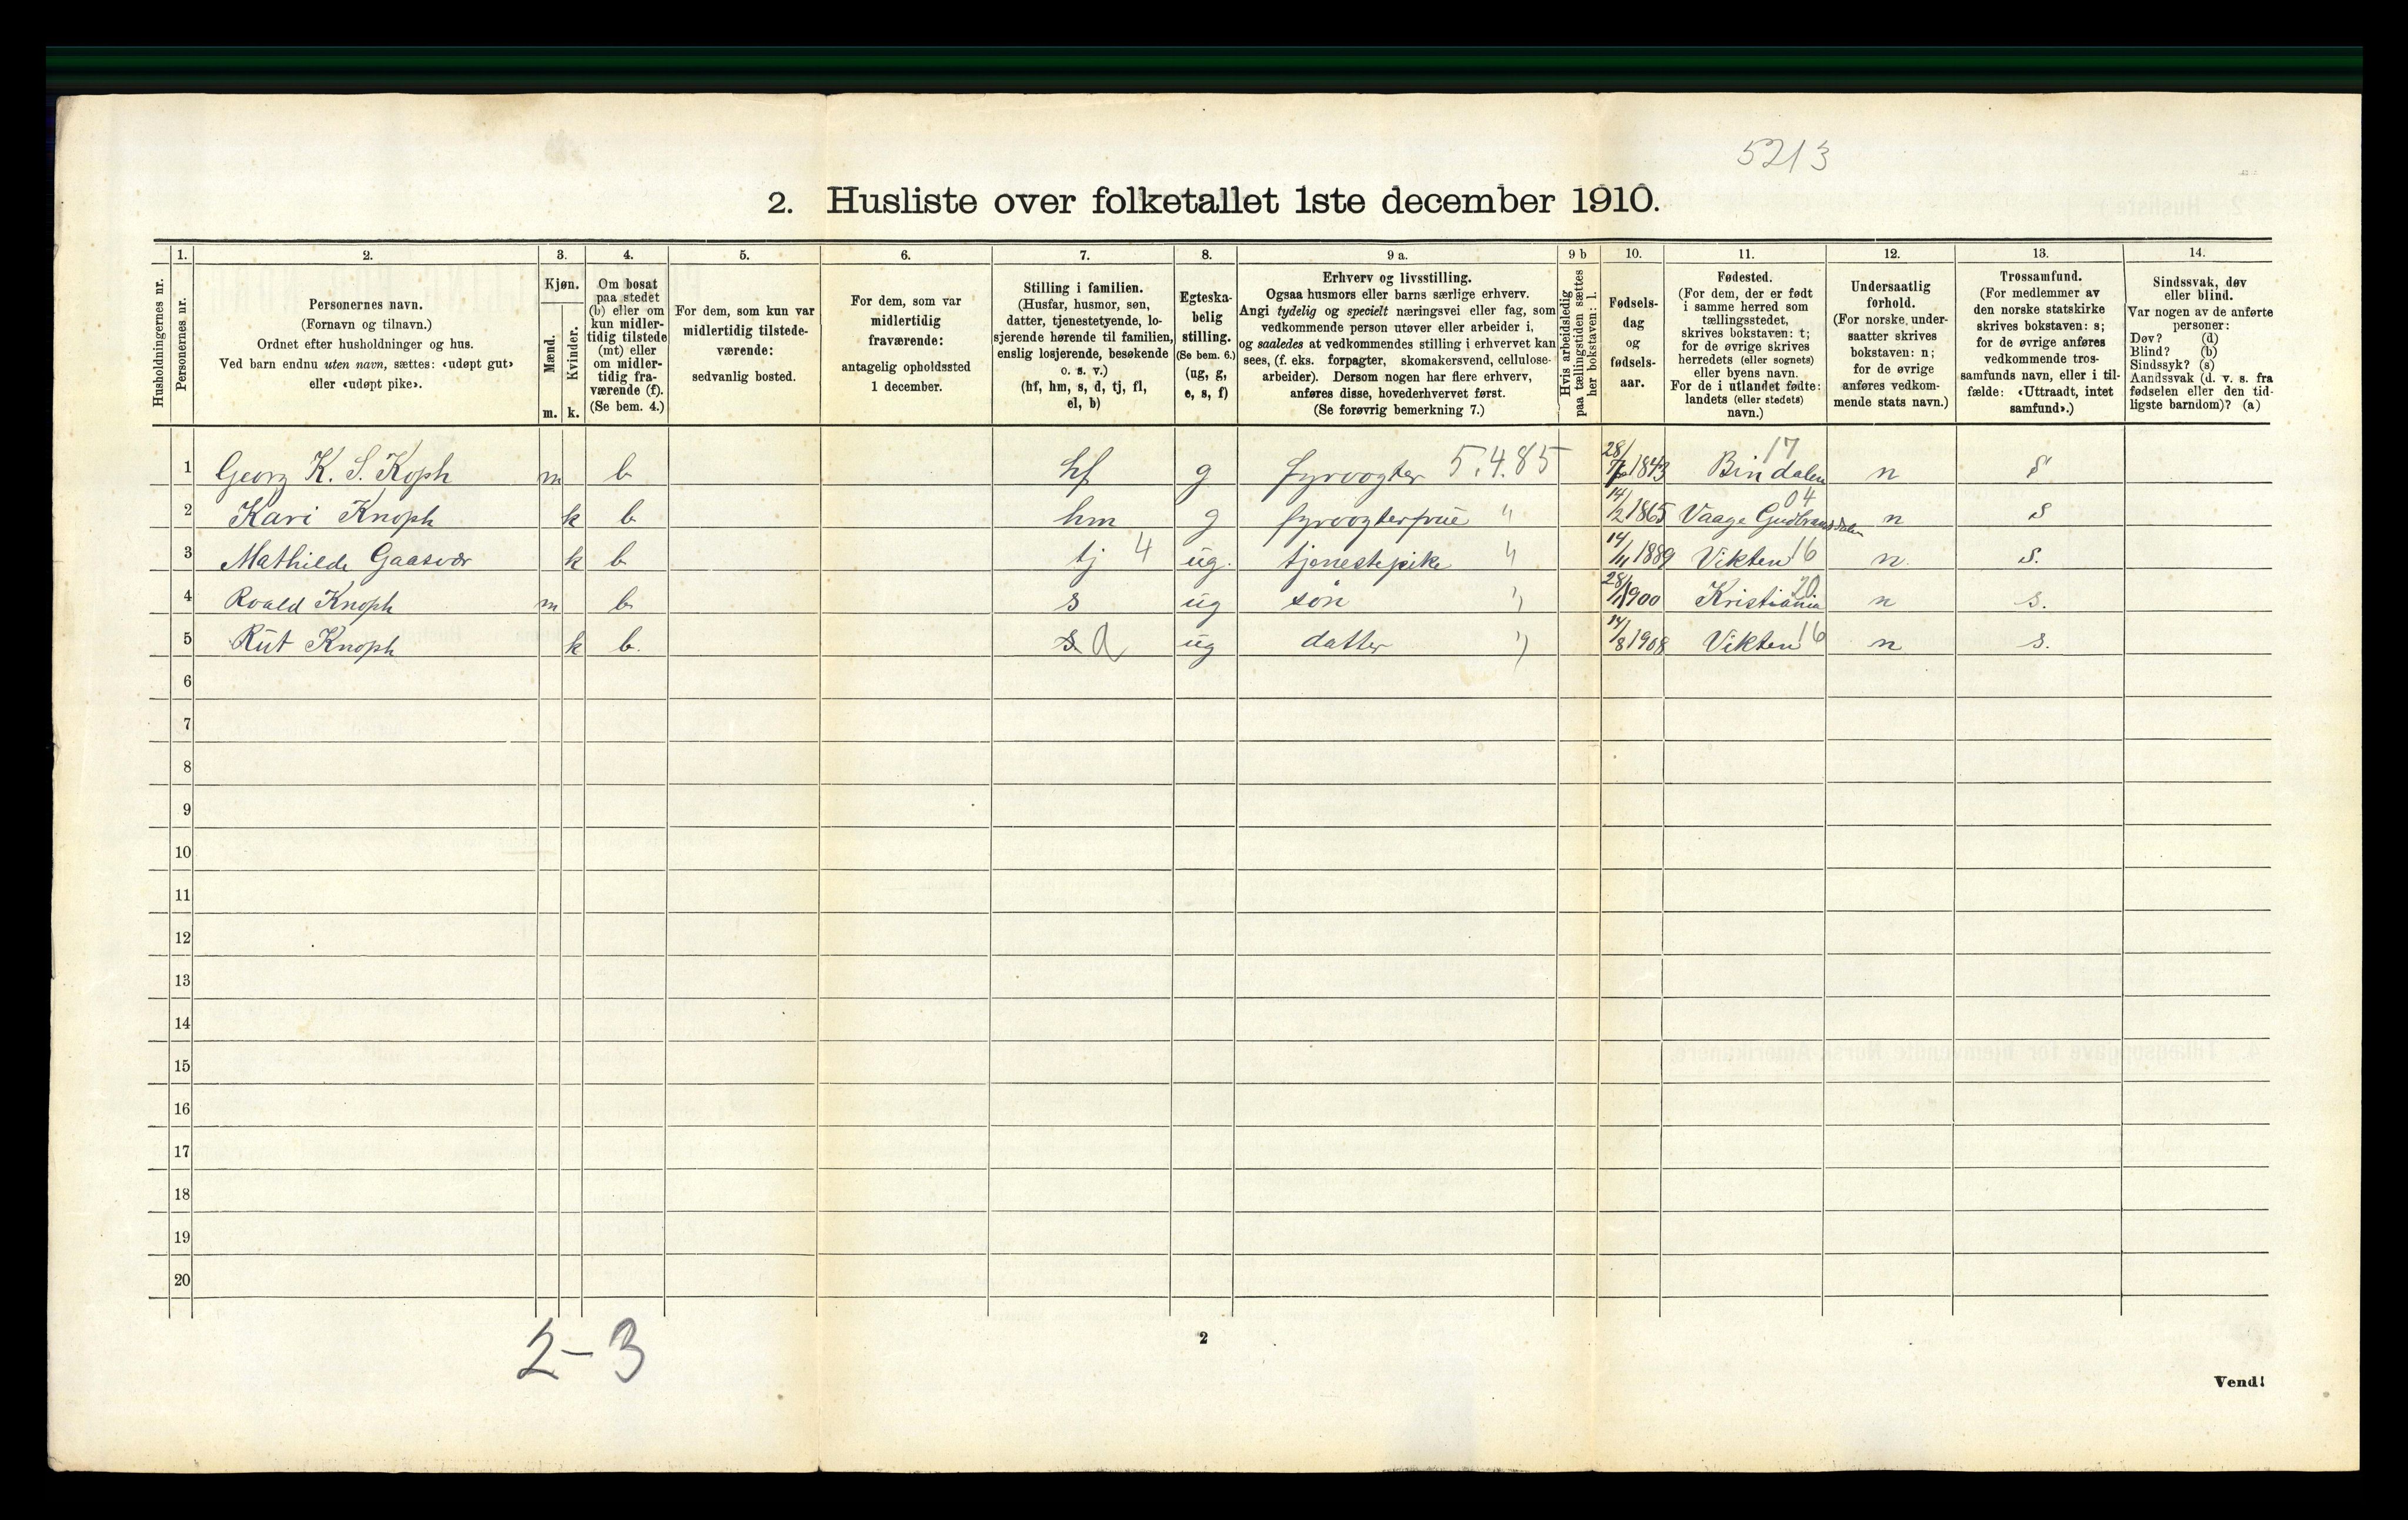 5213
2. Husliste over folketallet 1ste december 1910.
Husholdningernes nr.
1. Personernes nr.
2. Personernes navn.
(Fornavn og tilnavn.)
Ordnet efter husholdninger og hus.
Ved barn endnu uten navn, sættes: «udøpt gut»
eller «udøpt pike».
3. Kjøn.
Mænd. m.
Kvinder. k.
4. Om bosat
paa stedet
(b) eller om
kun midler-
tidig tilstede
(mt) eller
om midler-
tidig fra-
værende (f).
(Se bem. 4.)
5. For dem, som kun var
midlertidig tilstede-
værende:
sedvanlig bosted.
6. For dem, som var
midlertidig
fraværende:
antagelig opholdssted
1 december.
7. Stilling i familien.
(Husfar, husmor, søn,
datter, tjenestetyende, lo-
sjerende hørende til familien,
enslig losjerende, besøkende
o. s. v.)
(hf, hm, s, d, tj, fl,
el, b)
8. Egteska-
belig
stilling.
(Se bem. 6.)
(ug, g,
e, s, f)
9 a. Erhverv og livsstilling.
Ogsaa husmors eller barns særlige erhverv.
Angi tydelig og specielt næringsvei eller fag, som
vedkommende person utøver eller arbeider i,
og saaledes at vedkommendes stilling i erhvervet kan
sees, (f. eks. forpagter, skomakersvend, cellulose-
arbeider). Dersom nogen har flere erhverv,
anføres disse, hovederhvervet først.
(Se forøvrig bemerkning 7.)
9 b Hvis arbeidsledig
paa tællingstiden sættes
her bokstaven: l.
10. Fødsels-
dag
og
fødsels-
aar.
11. Fødested.
(For dem, der er født
i samme herred som
tællingsstedet,
skrives bokstaven: t;
for de øvrige skrives
herredets (eller sognets)
eller byens navn.
For de i utlandet fødte:
landets (eller stedets)
navn.)
12. Undersaatlig
forhold.
(For norske under-
saatter skrives
bokstaven: n;
for de øvrige
anføres vedkom-
mende stats navn.)
13. Trossamfund.
(For medlemmer av
den norske statskirke
skrives bokstaven: s;
for de øvrige anføres
vedkommende tros-
samfunds navn, eller i til-
fælde: «Uttraadt, intet
samfund».)
14. Sindssvak, døv
eller blind.
Var nogen av de anførte
personer:
Døv? (d)
Blind? (b)
Sindssyk? (s)
Aandssvak (d. v. s. fra
fødselen eller den tid-
ligste barndom)? (a)
1 Georg K. S. Koph m b hf g fyrvogter 5.4.85 1843 Bindalen 17 n s
2 Kari Knoph k b hm g fyrvogterfrue " 14/2 1865 Vaage Gudbrandsdalen 04 n s
3 Mathilde Gaasvær k b tj 4 ug. tjenestepike " 14/11 1889 Vikten 16 n. s.
4 Roald Knoph m b s ug søn " 1900 Kristiania 20 n s.
5 Rut Knoph k b. s d ug datter " 14/8 1908 Vikten 16 n s.
6
7
8
9
10
11
12
13
14
15
16
17
18
19
20
2-3
2
Vend!